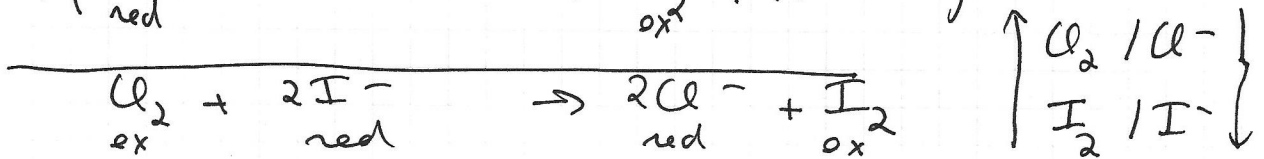 red ox
Cl₂ + 2I⁻ → 2Cl⁻ + I₂
ex red red ox
↑ Cl₂ / Cl⁻ ↓
I₂ / I⁻